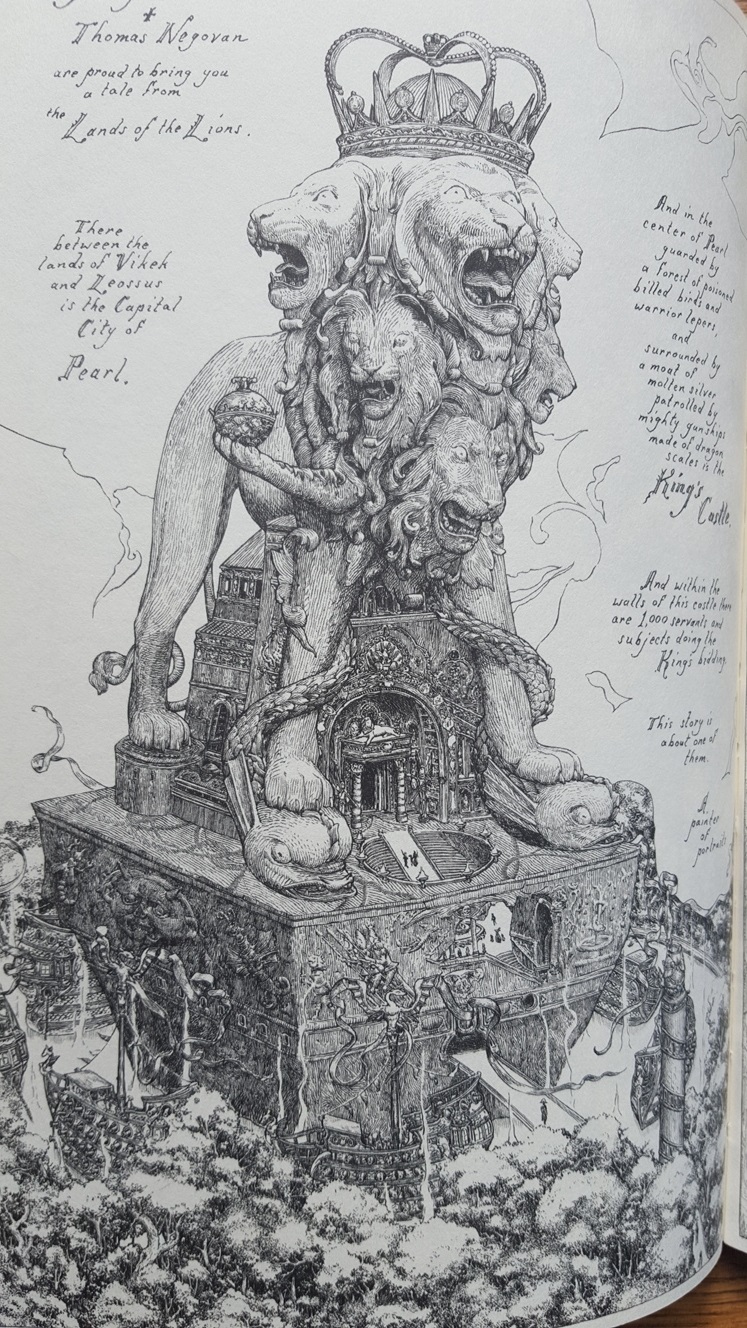 &
Thomas Negovan
are proud to bring you
a tale from
the
Lands of the Lions.
There
between the
lands of Vikek
and Leossus
is the Capital
City of
Pearl.
And in the
center of Pearl
guarded by
a forest of poisoned
billed birds and
warrior lepers,
and
surrounded by
a moat of
molten silver
patrolled by
mighty gunships
made of dragon
scales is the
King's
Castle.
And within the
walls of this castle there
are 1,000 servants and
subjects doing the
King's bidding.
This story is
about one of
them.
A
painter
of
portraits